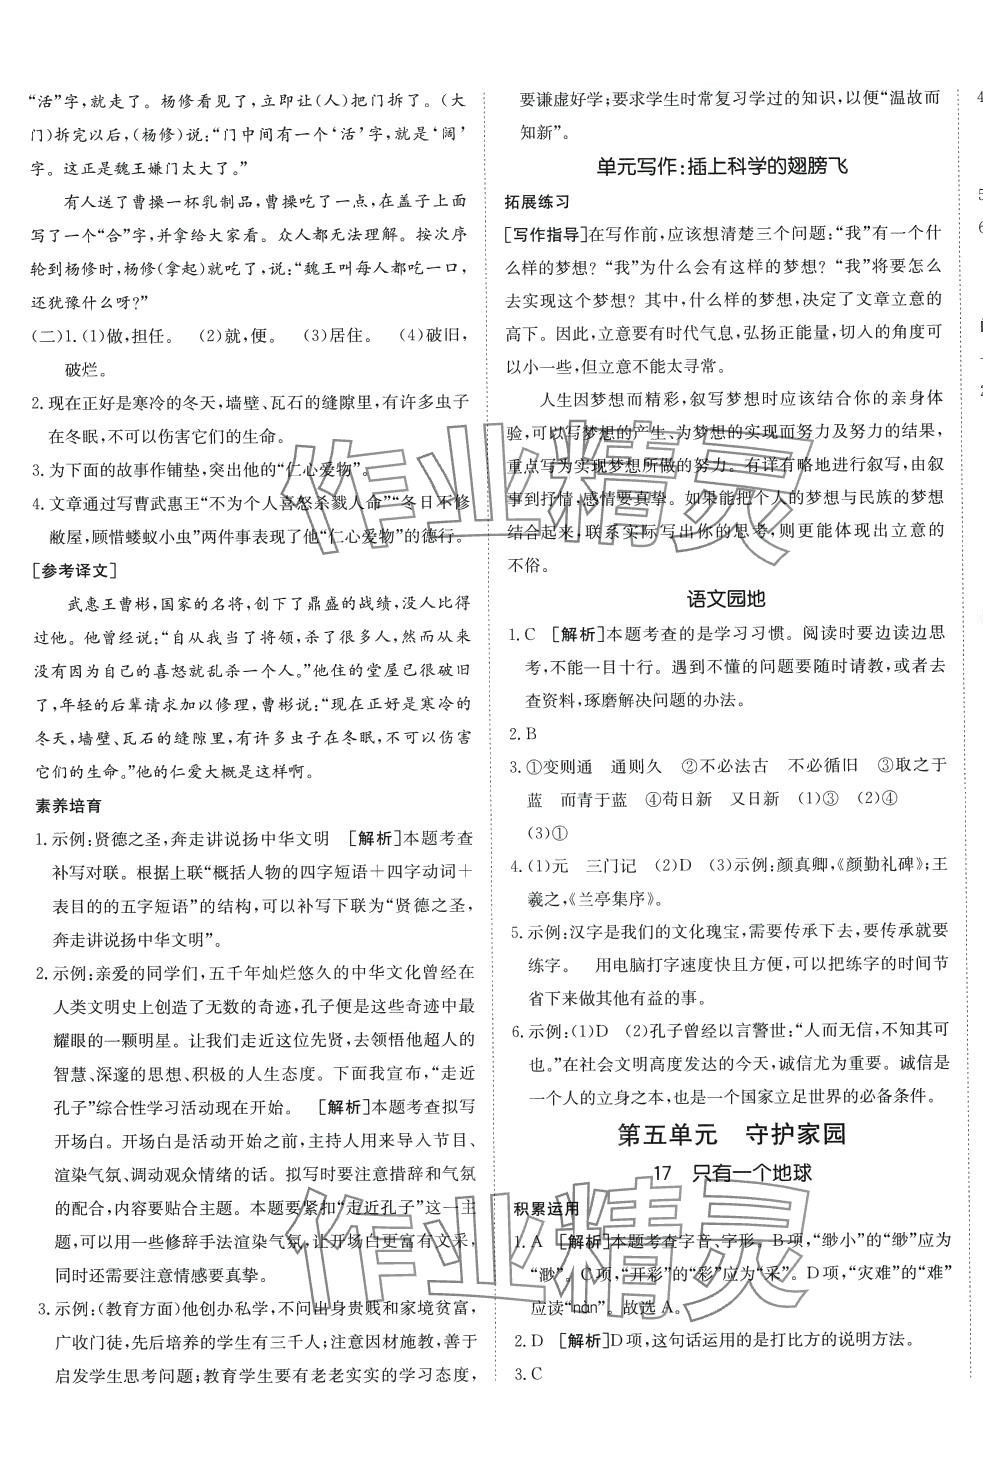 “活”字,就走了。杨修看见了,立即让(人)把门拆了。(大
门)拆完以后,(杨修)说:“门中间有一个‘活’字,就是‘阔’
字。这正是魏王嫌门太大了。”
有人送了曹操一杯乳制品,曹操吃了一点,在盖子上面
写了一个“合”字,并拿给大家看。众人都无法理解。按次序
轮到杨修时,杨修(拿起)就吃了,说:“魏王叫每人都吃一口,
还犹豫什么呀?”
(二)1.(1)做,担任。 (2)就,便。 (3)居住。 (4)破旧,
破烂。
2. 现在正好是寒冷的冬天,墙壁、瓦石的缝隙里,有许多虫子
在冬眠,不可以伤害它们的生命。
3. 为下面的故事作铺垫,突出他的“仁心爱物”。
4. 文章通过写曹武惠王“不为个人喜怒杀戮人命”“冬日不修
敝屋,顾惜蝼蚁小虫”两件事表现了他“仁心爱物”的德行。
[参考译文]
武惠王曹彬,国家的名将,创下了鼎盛的战绩,没人比得
过他。他曾经说:“自从我当了将领,杀了很多人,然而从来
没有因为自己的喜怒就乱杀一个人。”他住的堂屋已很破旧
了,年轻的后辈请求加以修理,曹彬说:“现在正好是寒冷的
冬天,墙壁、瓦石的缝隙里,有许多虫子在冬眠,不可以伤害
它们的生命。”他的仁爱大概是这样啊。
素养培育
1. 示例:贤德之圣,奔走讲说扬中华文明 [解析]本题考查
补写对联。根据上联“概括人物的四字短语+四字动词+
表目的的五字短语”的结构,可以补写下联为“贤德之圣,
奔走讲说扬中华文明”。
2. 示例:亲爱的同学们,五千年灿烂悠久的中华文化曾经在
人类文明史上创造了无数的奇迹,孔子便是这些奇迹中最
耀眼的一颗明星。让我们走近这位先贤,去领悟他超人的
智慧、深邃的思想、积极的人生态度。下面我宣布,“走近
孔子”综合性学习活动现在开始。 [解析]本题考查拟写
开场白。开场白是活动开始之前,主持人用以导入节目、
渲染气氛、调动观众情绪的话。拟写时要注意措辞和气氛
的配合,内容要贴合主题。本题要紧扣“走近孔子”这一主
题,可以用一些修辞手法渲染气氛,让开场白更富有文采,
同时还需要注意情感要真挚。
3. 示例:(教育方面)他创办私学,不问出身贵贱和家境贫富,
广收门徒,先后培养的学生有三千人;注意因材施教,善于
启发学生思考问题;教育学生要有老老实实的学习态度,
要谦虚好学;要求学生时常复习学过的知识,以便“温故而
知新”。
单元写作:插上科学的翅膀飞
拓展练习
[写作指导]在写作前,应该想清楚三个问题:“我”有一个什
么样的梦想?“我”为什么会有这样的梦想?“我”将要怎么
去实现这个梦想? 其中,什么样的梦想,决定了文章立意的
高下。因此,立意要有时代气息,弘扬正能量,切入的角度可
以小一些,但立意不能太寻常。
人生因梦想而精彩,叙写梦想时应该结合你的亲身体
验,可以写梦想的产生、为梦想的实现而努力及努力的结果,
重点写为实现梦想所做的努力。有详有略地进行叙写,由叙
事到抒情,感情要真挚。如果能把个人的梦想与民族的梦想
结合起来,联系实际写出你的思考,则更能体现出立意的
不俗。
语文园地
1. C [解析]本题考查的是学习习惯。阅读时要边读边思
考,不能一目十行。遇到不懂的问题要随时请教,或者去
查资料,琢磨解决问题的办法。
2. B
3. ①变则通 通则久 ②不必法古 不必循旧 ③取之于
蓝 而青于蓝 ④苟日新 又日新 (1)③ (2)④
(3)①
4. (1)元 三门记 (2)D (3)示例:颜真卿,《颜勤礼碑》;王
羲之,《兰亭集序》。
5. 示例:汉字是我们的文化瑰宝,需要传承下去,要坚持就要
练字。 用电脑打字速度快且方便,可以把练字的时间节
省下来做其他有益的事。
6. 示例:(1)D (2)孔子曾经以言警世:“人而无信,不知其可
也。”在社会文明高度发达的今天,诚信尤为重要。诚信是
一个人的立身之本,也是一个国家立足世界的必备条件。
第五单元 守护家园
17 只有一个地球
积累运用
1. A [解析]本题考查字音、字形。B项,“缈小”的“缈”应为
“渺”。C项,“开彩”的“彩”应为“采”。D项,“灾难”的“难”
应读“nàn”。故选A。
2. D [解析]D项,这句话运用的是打比方的说明方法。
3. C
4
5
6
2
作业精灵
作业精灵